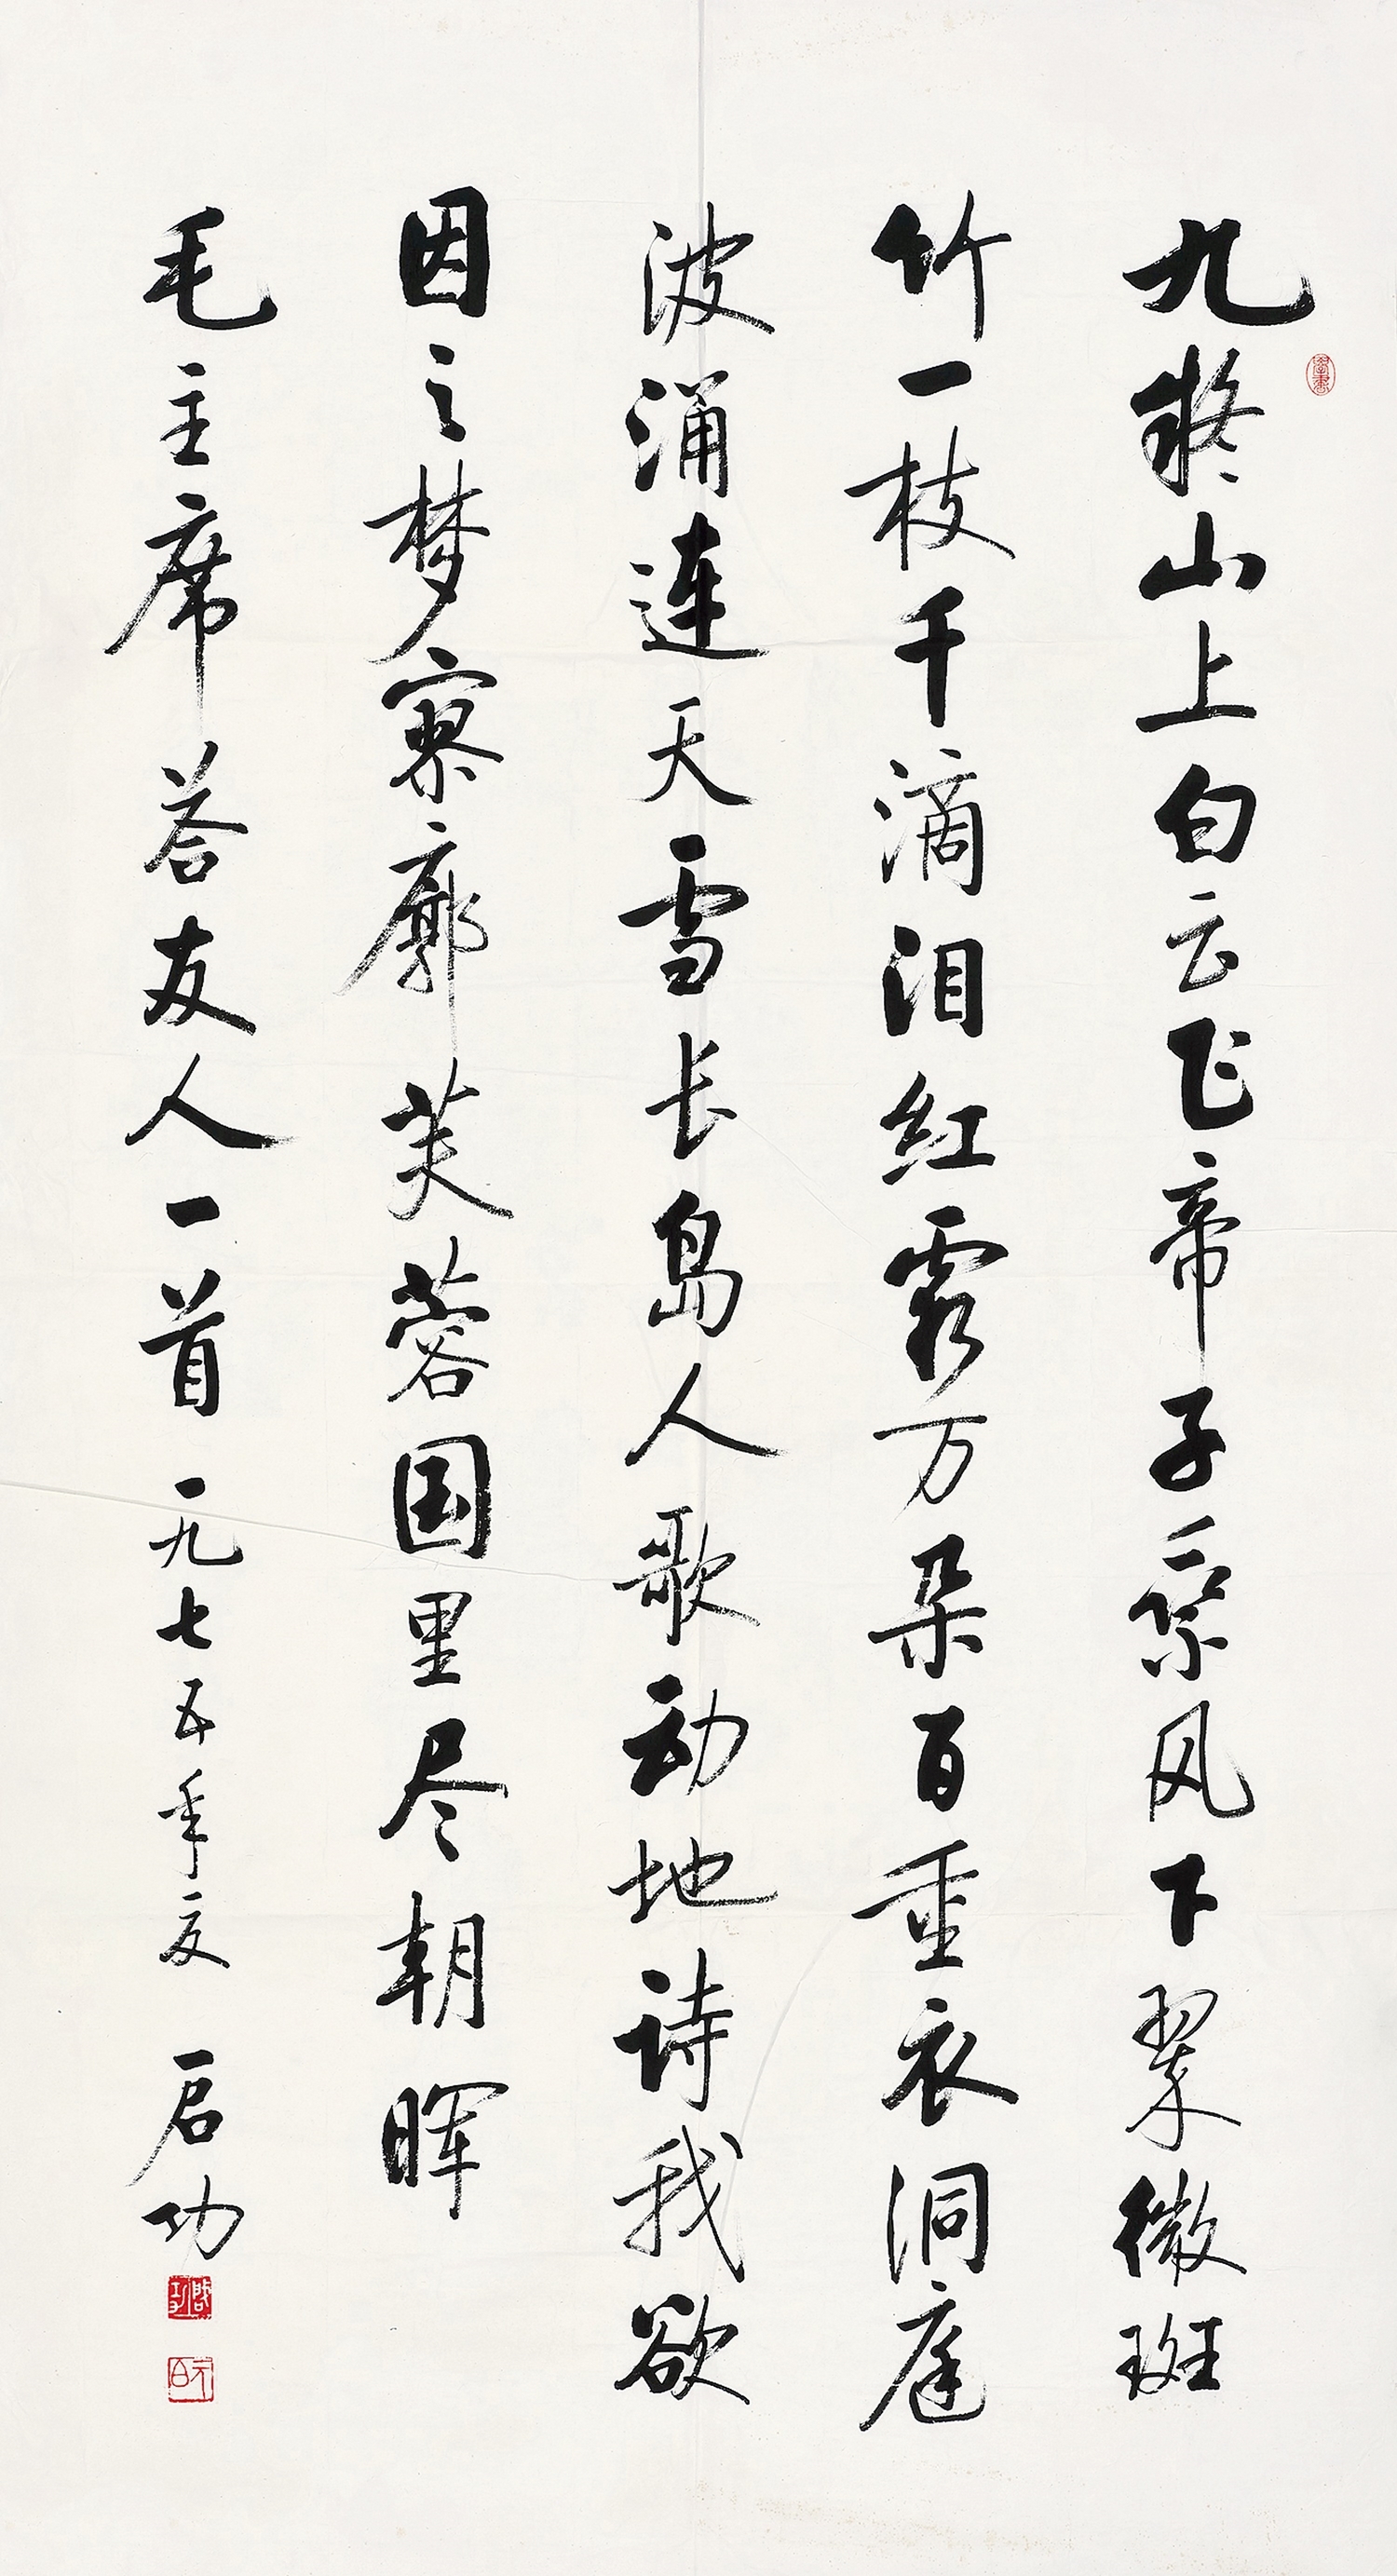 九疑山上白云飞帝子乘风下翠微斑
竹一枝千滴泪红霞万朵百重衣洞庭
波涌连天雪长岛人歌动地诗我欲
因之梦寥廓芙蓉国里尽朝晖
毛主席荅友人一首 一九七五年夏 启功
启功
元白